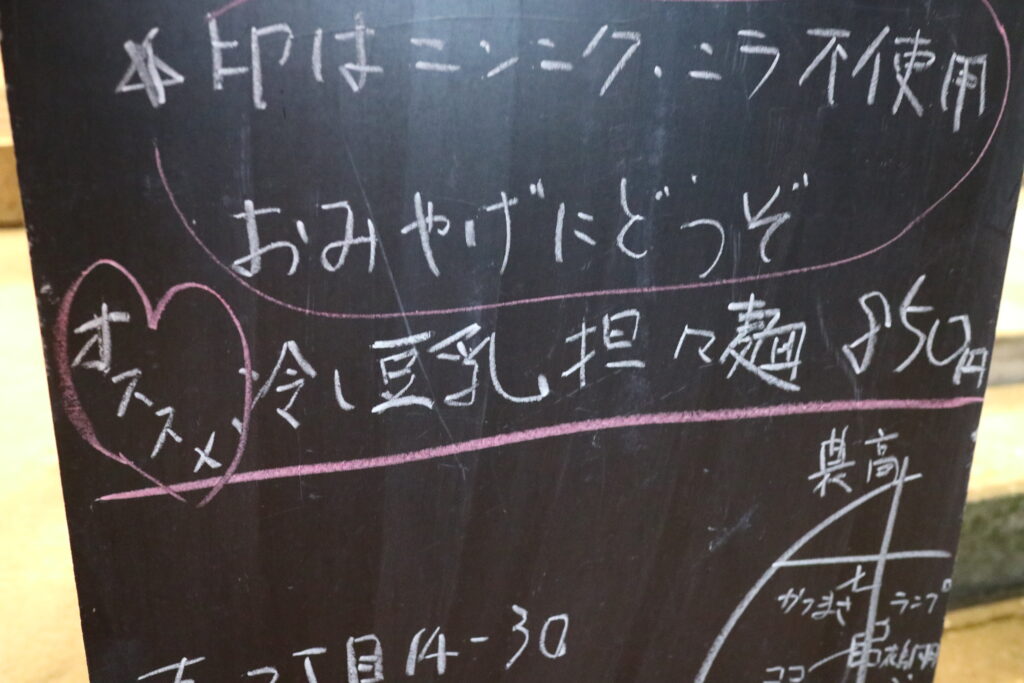 ☆印はニンニク、ニラ不使用
おみやげにどうぞ
オススメ
冷し豆乳担々麺 850円
農高
かつまさ
ランプ
ココ
丁目14-30